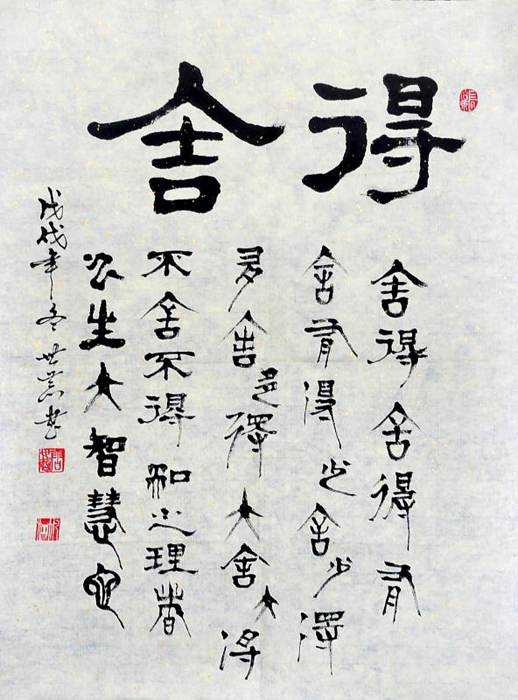 得舍
舍得舍得有
舍有得少舍少得
多舍多得大舍大得
不舍不得知之理者
公生大智慧也
戊戌年冬世書